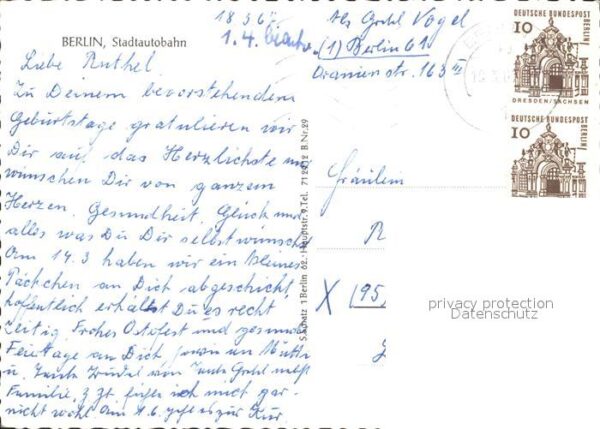 BERLIN, Stadtautobahn
18.3.67.
1.4.
Abs Grhl Vogel
(1) Berlin 61
Oranienstr. 163 III
Liebe Ruthel.
Zu Deinem bevorstehenden
Geburtstage gratulieren wir
Dir auf das Herzlichste wir
wünschen Dir von ganzem
Herzen. Gesundheit, Glück und
alles was Du Dir selbst wünschst
Am 14.3 haben wir ein kleines
Päckchen an Dich abgeschickt,
hoffentlich erhälst Du es recht
zeitig. Frohes Osterfest und gesunde
Feiertage an Dich
u. Tante von Tante nebst
Familie, z. Zt. fühle ich mich gar-
nicht wohl Am 4.6. gehe es zur Kur.
Schatz 1 Berlin 62, Hauptstr. 9, Tel. 712912 B Nr. 29
Fräulein
R
X (195
DEUTSCHE BUNDESPOST
BERLIN
10
DRESDEN/SACHSEN
DEUTSCHE BUNDESPOST
BERLIN
10
privacy protection
Datenschutz